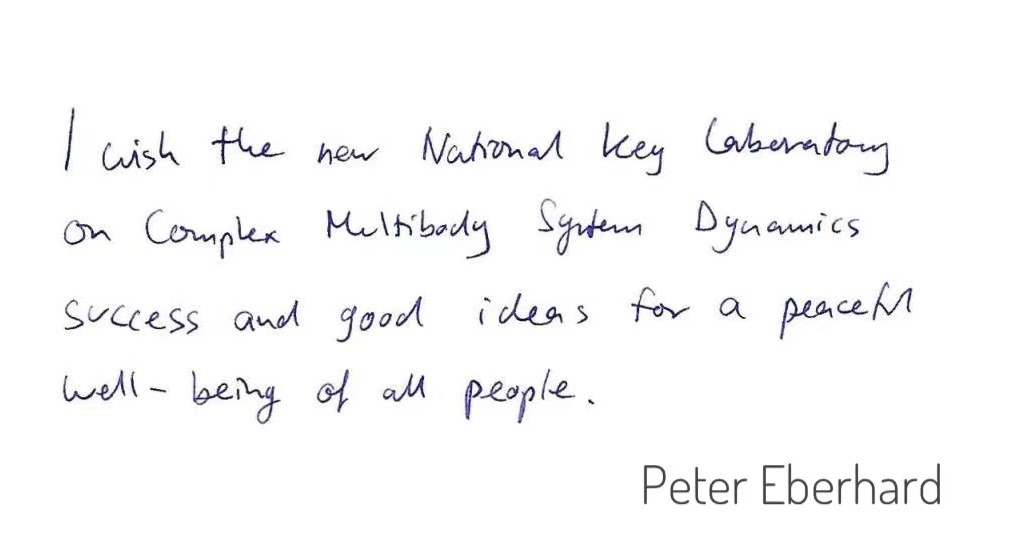 I wish the new National Key Laboratory
on Complex Multibody System Dynamics
success and good ideas for a peaceful
well-being of all people.
Peter Eberhard